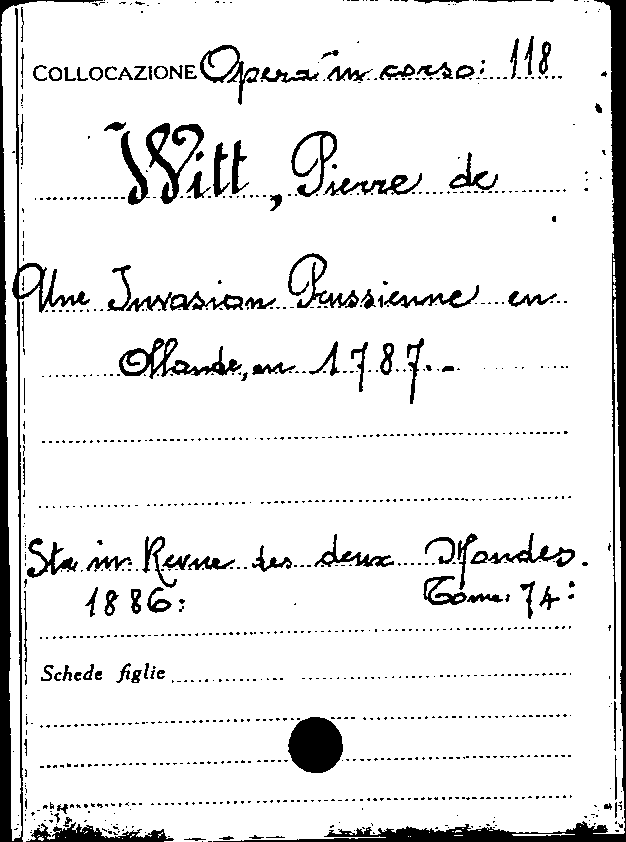 COLLOCAZIONE Opera in corso: 118
Witt, Pierre de
Une Invasion Prussienne en
Ollande, en 1787.-
Sta in Revue des deux Mondes.
1886: Tome: 74:
Schede figlie